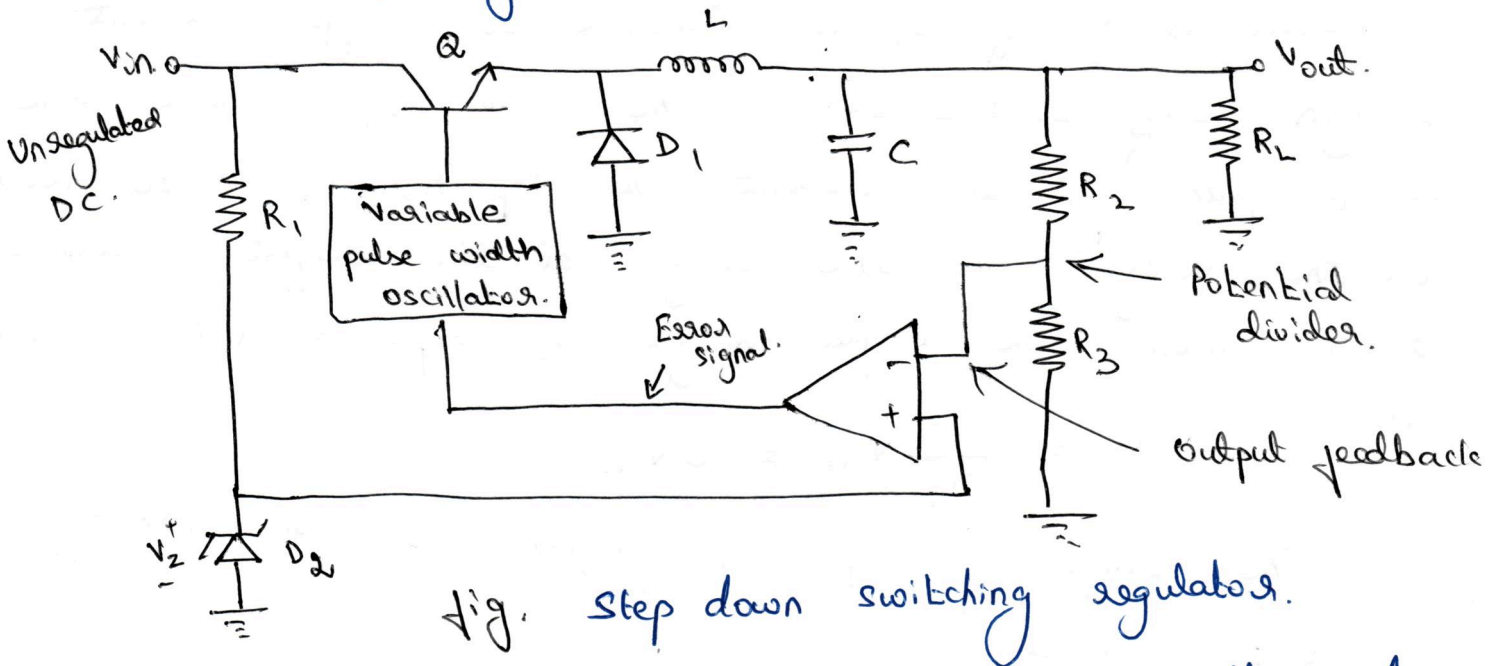 L
Vin
Q
Vout.
Unregulated
DC.
R1
Variable
pulse width
oscillator.
D1
C
R2
RL
Potential
divider.
Error
signal.
-
+
R3
Output feedback
+
Vz
-
D2
fig. Step down switching regulator.